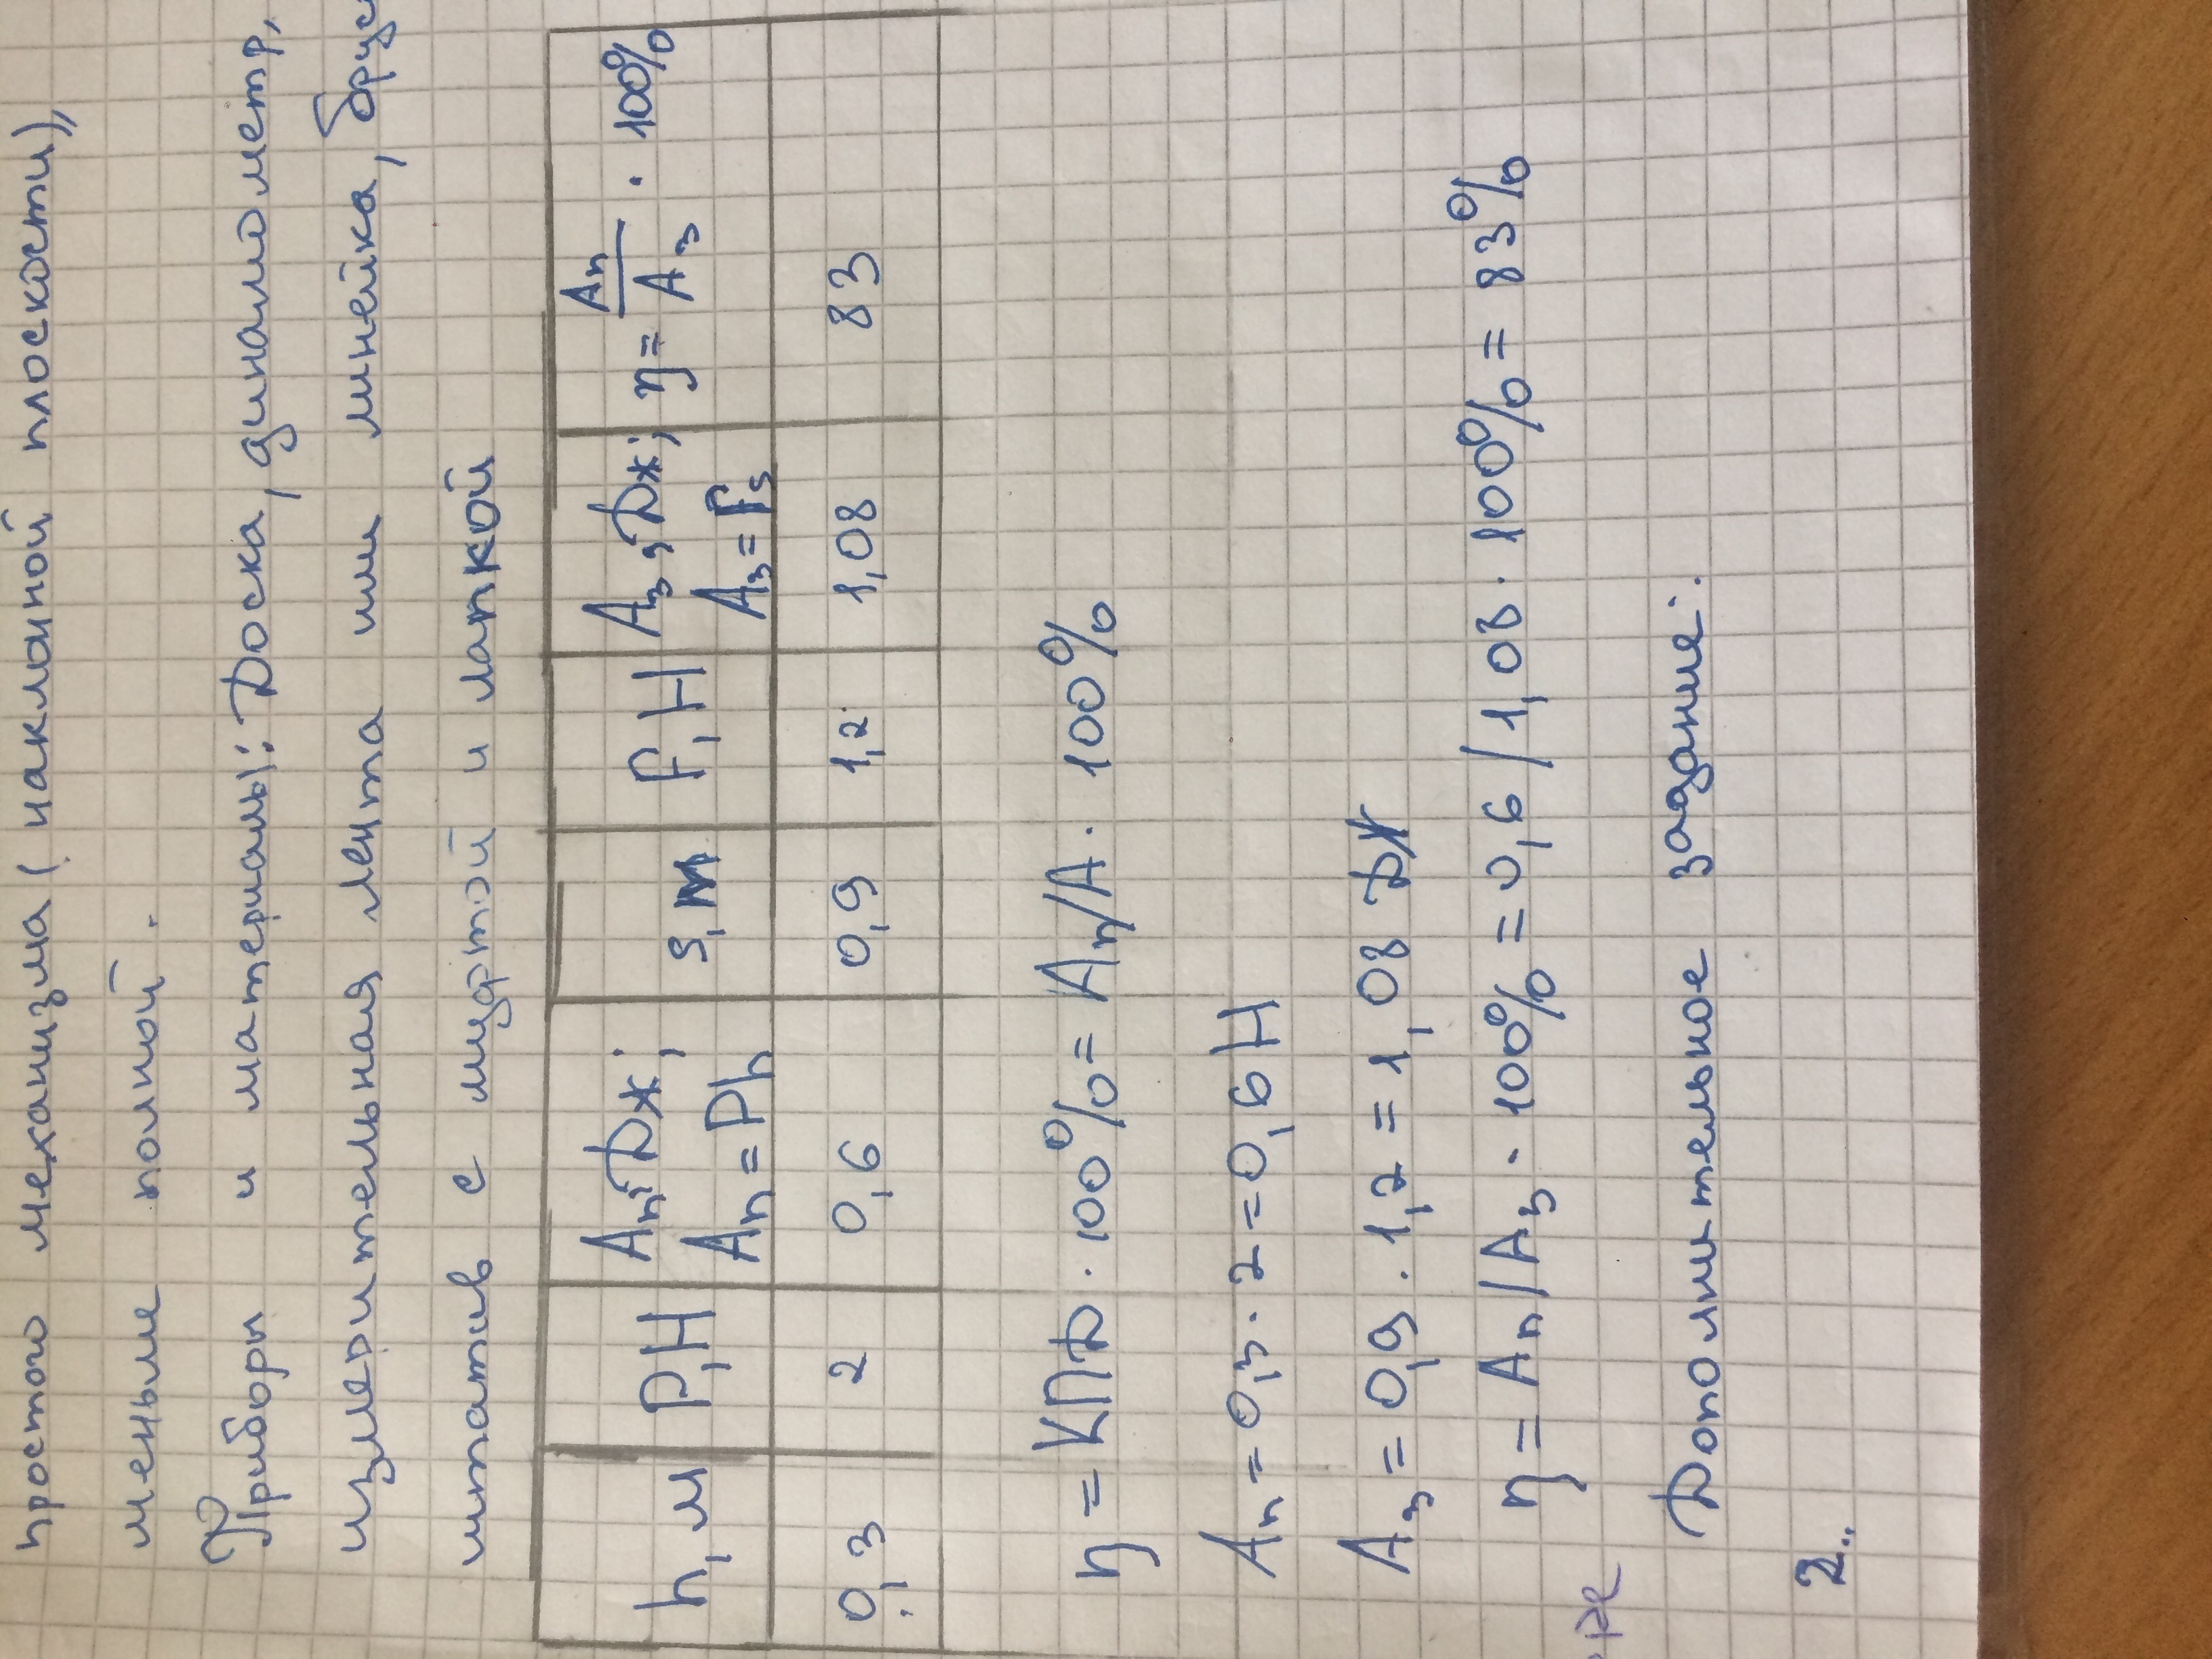 простого механизма (наклонной плоскости),
меньше полной.
Приборы и материалы: Доска, динамометр,
измерительная лента или линейка, брус
штатив с муфтой и лапкой
h, м P, Н Aп, Дж; s, м F, Н Aз, Дж; η = Aп/Aз · 100%
Aп = Ph Aз = Fs
0,3 2 0,6 0,9 1,2 1,08 83
η = КПД · 100% = Aп/A · 100%
Aп = 0,3 · 2 = 0,6 Н
Aз = 0,9 · 1,2 = 1,08 Дж
η = Aп/Aз · 100% = 0,6 / 1,08 · 100% = 83%
Дополнительное задание:
2.